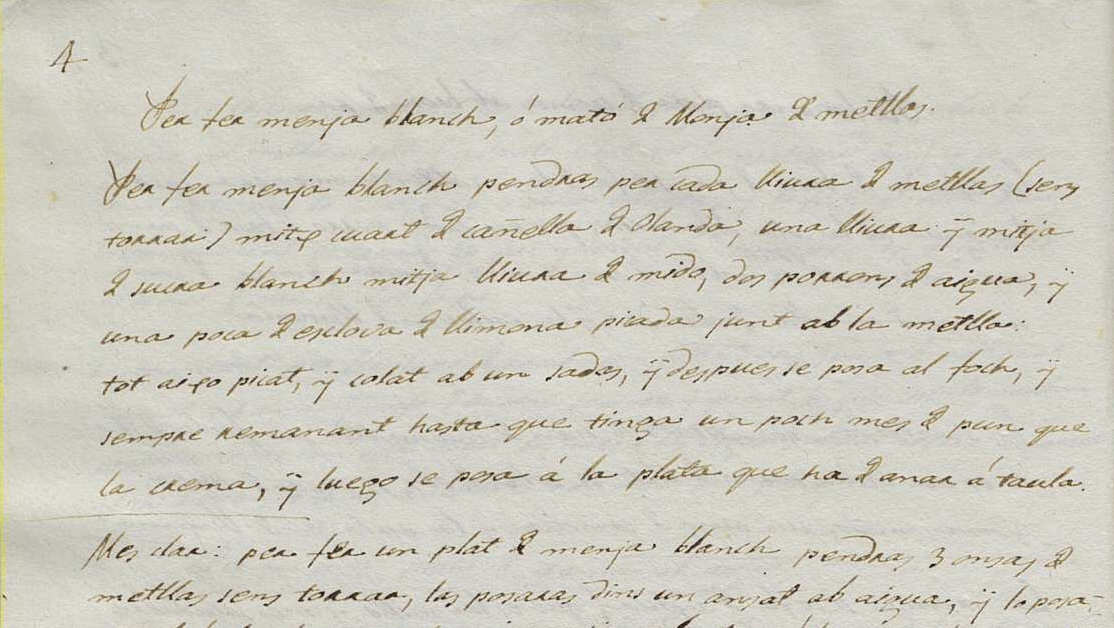 4
Per fer menja blanch, ó mató d Monja d metllas.
Per fer menja blanch pendras per cada lliura d metllas (sens
torrar) mitx cuart d cañella d Olanda, una lliura ÿ mitja
d sucra blanch mitja lliura d mido, dos porrons d aigua, ÿ
una poca d esclova d llimona picada junt ab la metlla:
tot aiço picat, ÿ colat ab un sadas, ÿ despues se posa al foch, ÿ
sempre remanant hasta que tinga un poch mes d pun que
la crema, ÿ luego se posa á la plata que ha d anar á taula.
Mes clar: per fer un plat d menja blanch pendras 3 onsas d
metllas sens torrar, las posaras dins un ansat ab aigua, ÿ lo posa-